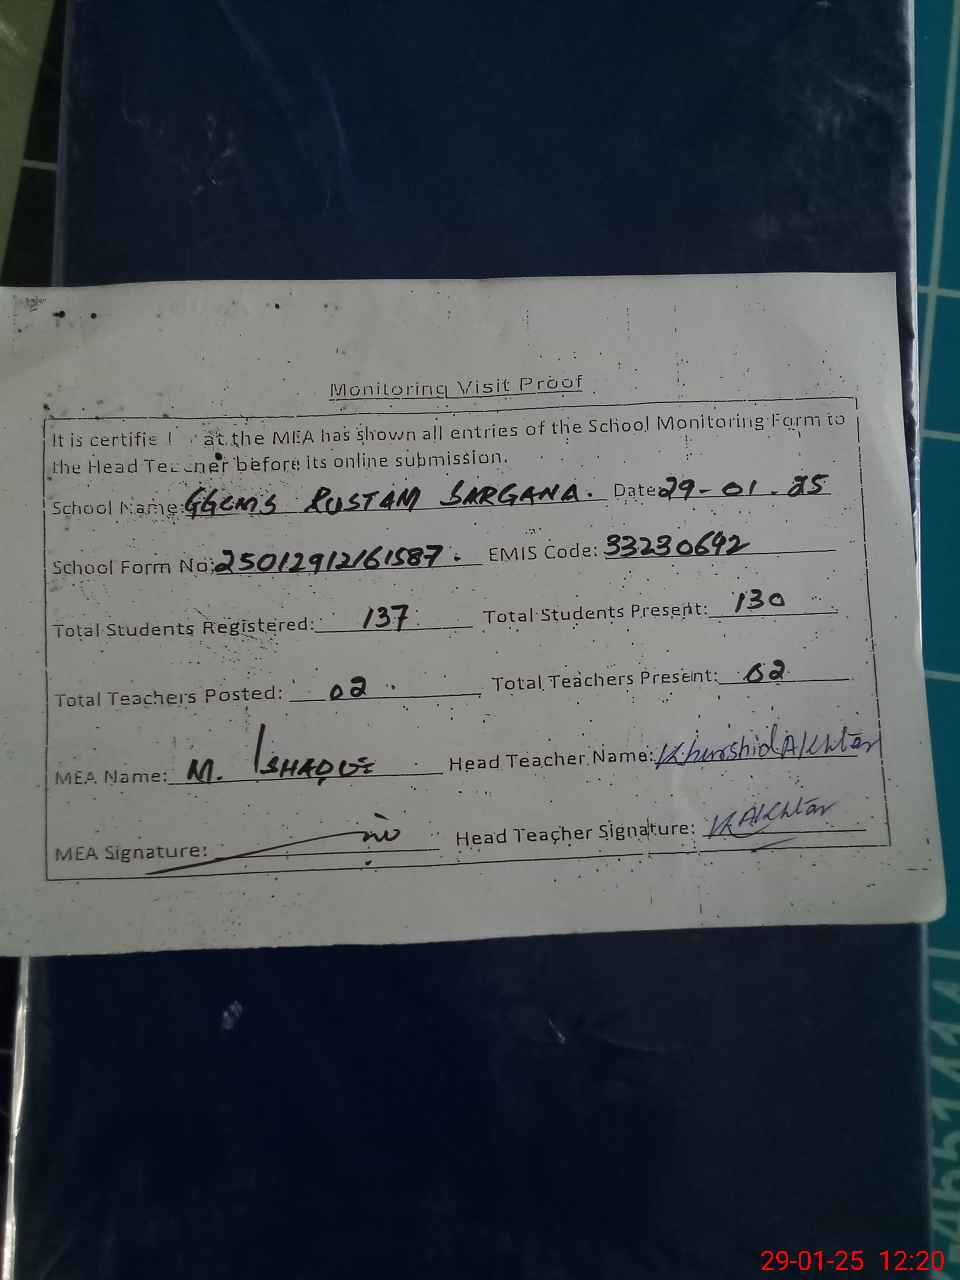 Monitoring Visit Proof
It is certifie at the MEA has shown all entries of the School Monitoring Form to
the Head Teacher before its online submission.
School Name: GGCMS RUSTAM SARGANA. Date 29-01-25
School Form No: 25012912161587. EMIS Code: 33230692
Total Students Registered: 137 Total Students Present: 130
Total Teachers Posted: 02 Total Teachers Present: 02
MEA Name: M. ISHAQUE Head Teacher Name: Khurshid Akhtar
MEA Signature: Head Teacher Signature: K Akhtar
29-01-25 12:20